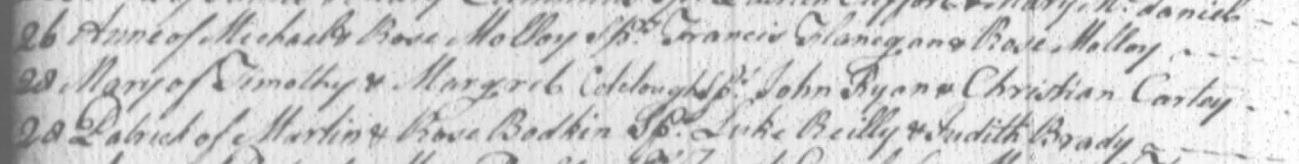 & Mary Mc daniel
26 Anne of Michael & Rose Molloy Sps. Francis Flanegan & Rose Molloy
28 Mary of Timothy & Margret Sps. John Ryan & Christian Carley
28 Patrick of Martin & Rose Bodkin Sps. Luke Reilly & Judith Brady